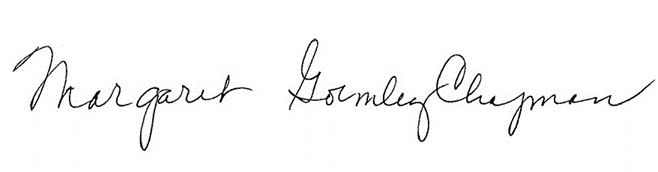 Margaret Gormley Chapman